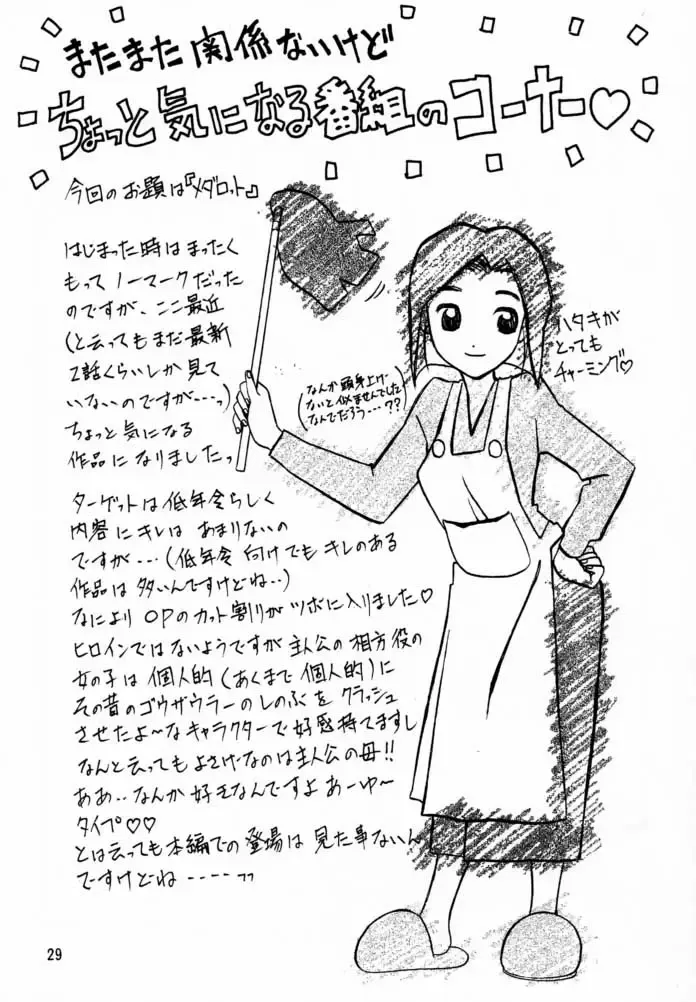 またまた関係ないけど
ちょっと気になる番組のコーナー♡
今回のお題は『メダロット』
はじまった時はまったく
もってノーマークだった
のですが、ここ最近
(と云ってもまだ最新
2話くらいしか見て
いないのですが---っ)
ちょっと気になる
作品になりましたっ
(なんか頭身上げ
ないと似ませんでした
なんでだろう---??)
ハタキが
とっても
チャーミング♡
ターゲットは低年令らしく
内容にキレはあまりないの
ですが---(低年令向けでもキレのある
作品は多いんですけどね--)
なにより OPのカット割りがツボに入りました♡
ヒロインではないようですが主人公の相方役の
女の子は個人的(あくまで個人的)に
その昔のゴウザウラーのしのぶをクラッシュ
させたよ〜なキャラクターで好感持てますし
なんと云ってもよさげなのは主人公の母!!
ああ..なんか好きなんですよあーゆ〜
タイプ♡♡
とは云っても本編での登場は見た事ないん
ですけどね----ッッ
29